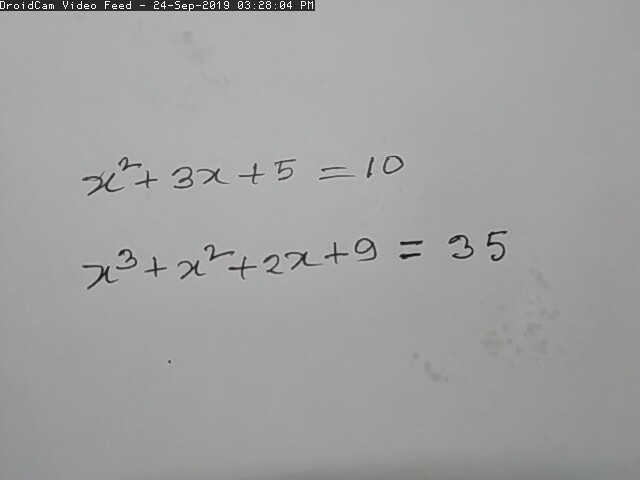 DroidCam Video Feed - 24-Sep-2019 03:28:04 PM
x² + 3x + 5 = 10
x³ + x² + 2x + 9 = 35